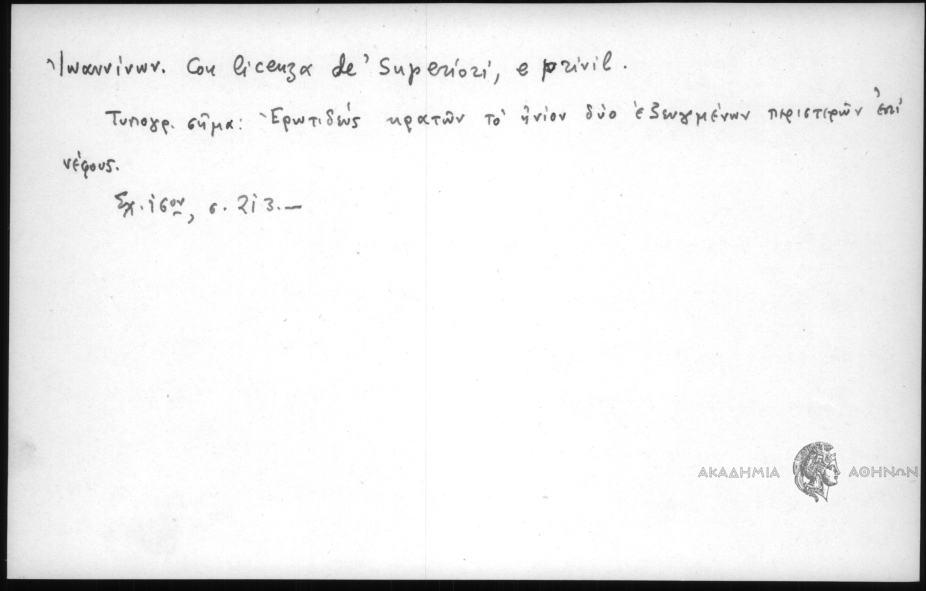 Ἰωαννίνων. Con licenza de' Superiori, e privil.
Τυπογρ. σῆμα: Ἐρωτιδεύς κρατῶν τό ἡνίον δύο ἐζευγμένων περιστερῶν ἐπί
νέφους.
Σχ. 16ον, σ. 213.—
ΑΚΑΔΗΜΙΑ ΑΘΗΝΩΝ